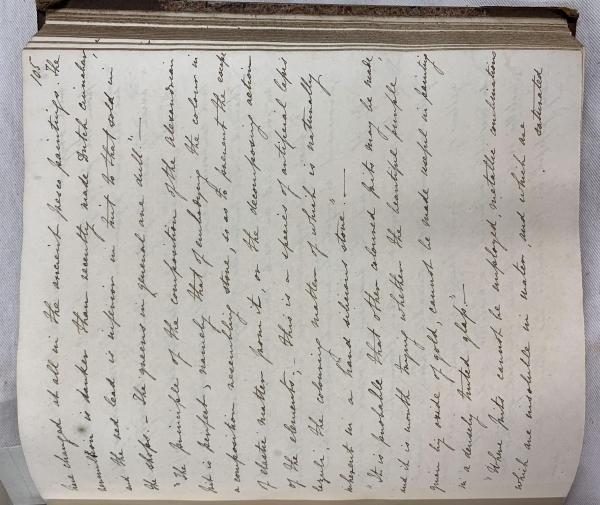 105
has changed at all in the ancient fresco paintings. The
vermillion is darker than recently made Dutch cinnabar,
and the red lead is inferior in tint to that sold in
the shops – The greens in general are dull". —
"The principle of the composition of the Alexandrian
frit is perfect, namely that of embodying the colour in
a composition resembling stone, so as to prevent the escape
of elastic matter from it, or the decomposing action
of the elements; – this is a species of artificial lapis
lazuli: the colouring matter of which is naturally
inherent in a hard siliceous stone". —
"It is probable that other coloured frits may be made,
and it is worth trying whether the beautiful purple
given by oxide of gold, cannot be made useful in painting
in a densely tinted glass". —
"Where frits cannot be employed, metallic combinations
which are insoluble in water, and which are
saturated